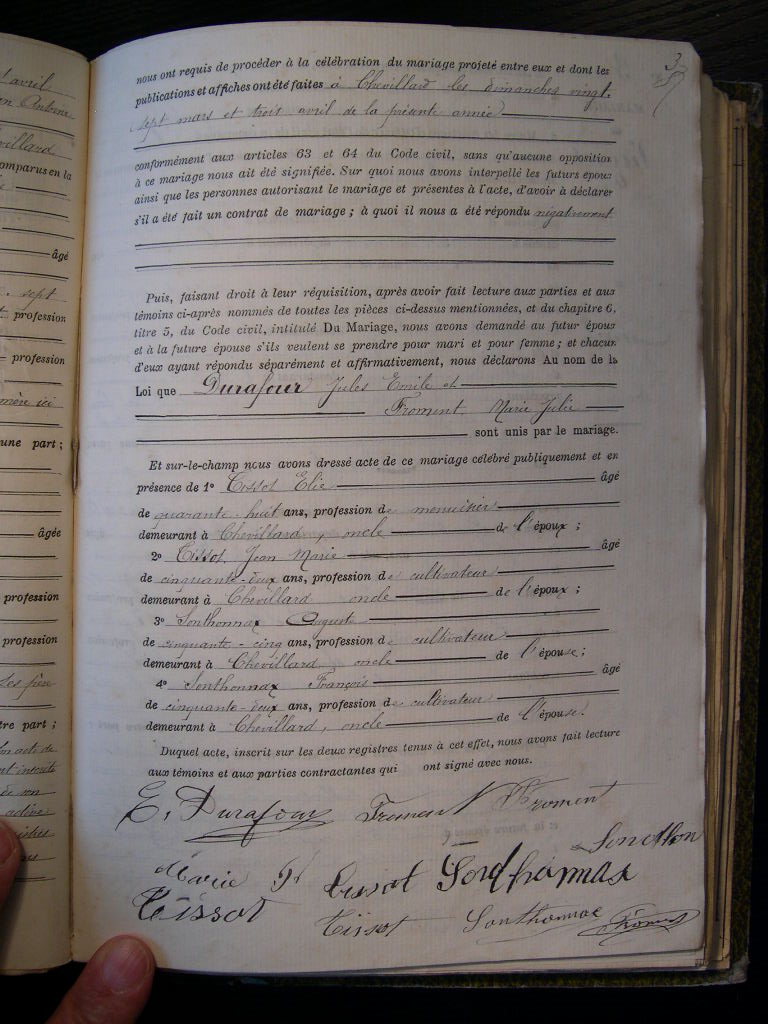 avril
Antoine
Chevillard
comparus en la
âgé
sept
profession
profession
mère ici
une part ;
âgée
profession
profession
tre part ;
acte de
inscrits
de son
nous ont requis de procéder à la célébration du mariage projeté entre eux et dont les
publications et affiches ont été faites à Chevillard les dimanches vingt
sept mars et trois avril de la présente année
conformément aux articles 63 et 64 du Code civil, sans qu'aucune opposition
à ce mariage nous ait été signifiée. Sur quoi nous avons interpellé les futurs époux
ainsi que les personnes autorisant le mariage et présentes à l'acte, d'avoir à déclarer
s'il a été fait un contrat de mariage ; à quoi il nous a été répondu négativement
Puis, faisant droit à leur réquisition, après avoir fait lecture aux parties et aux
témoins ci-après nommés de toutes les pièces ci-dessus mentionnées, et du chapitre 6,
titre 5, du Code civil, intitulé Du Mariage, nous avons demandé au futur époux
et à la future épouse s'ils veulent se prendre pour mari et pour femme ; et chacun
d'eux ayant répondu séparément et affirmativement, nous déclarons Au nom de la
Loi que Durafour Jules Emile et
Froment Marie Julie
sont unis par le mariage.
Et sur-le-champ nous avons dressé acte de ce mariage célébré publiquement et en
présence de 1° Tissot Elie âgé
de quarante-huit ans, profession de menuisier
demeurant à Chevillard, oncle de l'époux ;
2° Tissot Jean Marie âgé
de cinquante-deux ans, profession de cultivateur
demeurant à Chevillard oncle de l'époux ;
3° Sonthonnax Auguste
de cinquante-cinq ans, profession de cultivateur
demeurant à Chevillard oncle de l'épouse ;
4° Sonthonnax François âgé
de cinquante-deux ans, profession de cultivateur
demeurant à Chevillard, oncle de l'épouse.
Duquel acte, inscrit sur les deux registres tenus à cet effet, nous avons fait lecture
aux témoins et aux parties contractantes qui ont signé avec nous.
E. Durafour Froment Froment
Sonthon
Marie Tissot Sonthonnax
Tissot Tissot Sonthonnax Froment